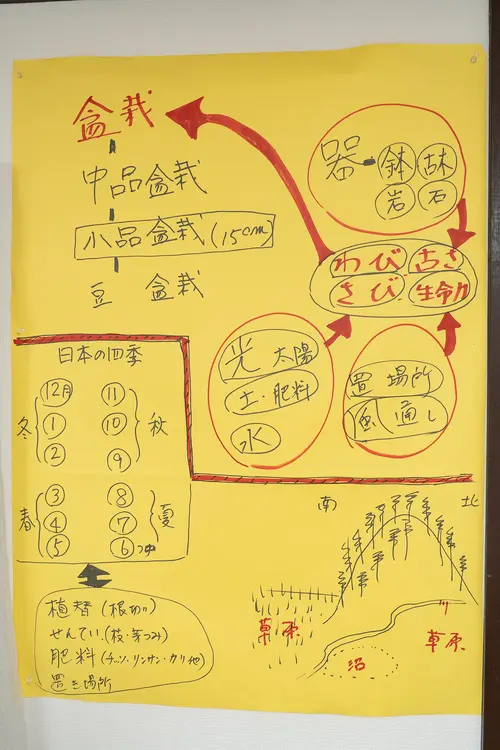 盆栽
中品盆栽
小品盆栽(15cm)
豆 盆栽
器-鉢 古木
岩 石
わび 古さ
さび 生命力
光 太陽
土・肥料
水
置場所
風通し
日本の四季
12月 11
冬 1 10 秋
2 9
3 8
春 4 7 夏
5 6 つゆ
植替(根切り)
せんてい(枝・芽つみ)
肥料(チッソ・リンサン・カリ他)
置き場所
南 北
草原
川
草原
沼